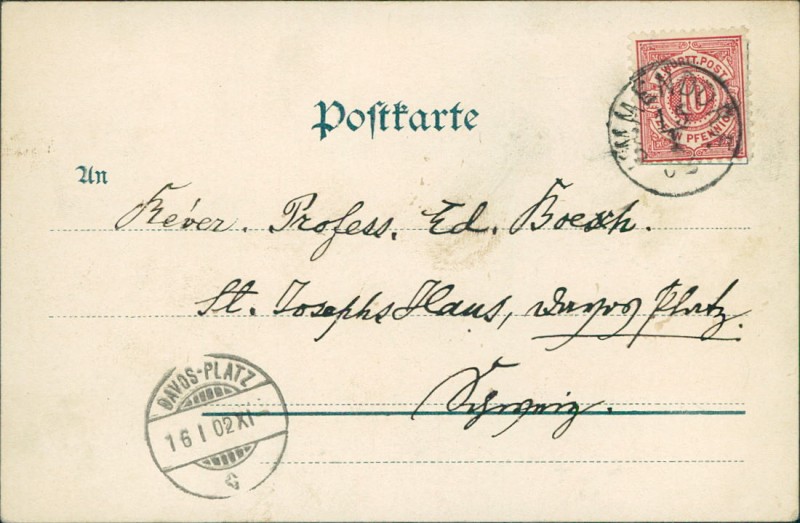 WÜRTT. POST
10
ZEHN PFENNIG
Postkarte
An
Réver. Profess. Ed.
St. Josephs Haus, Davos Platz.
Schweiz.
DAVOS-PLATZ
16 I 02 XI